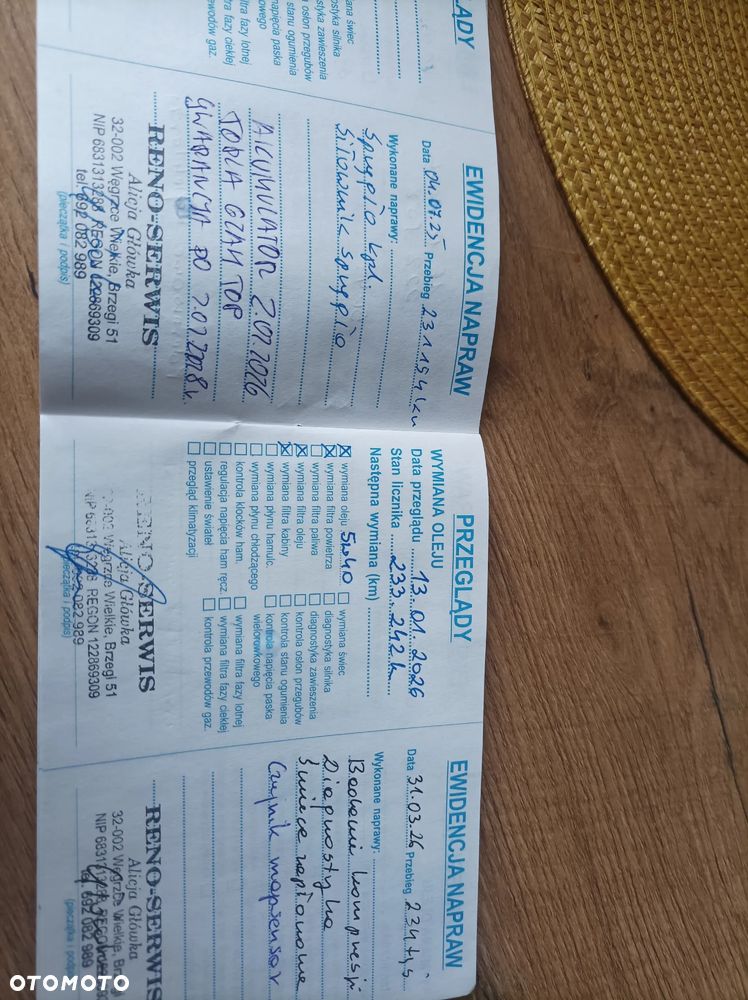 GLĄDY
ana świec
ostyka silnika
styka zawieszenia
osłon przegubów
stanu ogumienia
napięcia paska
kowego
filtra fazy lotnej
iltra fazy ciekłej
ewodów gaz.
EWIDENCJA NAPRAW
Data 04.07.25 Przebieg 231154 km
Wykonane naprawy:
Sprzęgło kpl.
Siłownik sprzęgła
AKUMULATOR 2.02.2026
TOPLA
TOP
GWARANCJA DO 2.02.2028 r.
RENO-SERWIS
Alicja Główka
32-002 Węgrzce Wielkie, Brzegi 51
REGON 122869309
tel. 692 082 989
(pieczątka i podpis)
PRZEGLĄDY
WYMIANA OLEJU
Data przeglądu 13.01.2026
Stan licznika 233.242 k
Następna wymiana (km)
wymiana oleju 5w40
wymiana filtra powietrza
wymiana filtra paliwa
wymiana filtra oleju
wymiana filtra kabiny
wymiana płynu hamulc.
wymiana płynu chłodzącego
kontrola klocków ham.
regulacja napięcia ham ręcz.
ustawienie świateł
przegląd klimatyzacji
wymiana świec
diagnostyka silnika
diagnostyka zawieszenia
kontrola osłon przegubów
kontrola stanu ogumienia
kontrola napięcia paska
wielorowkowego
wymiana filtra fazy lotnej
wymiana filtra fazy ciekłej
kontrola przewodów gaz.
RENO-SERWIS
Alicja Główka
32-002 Węgrzce Wielkie, Brzegi 51
REGON 122869309
692 082 989
(pieczątka i podpis)
EWIDENCJA NAPRAW
Data 31.03.26 Przebieg
Wykonane naprawy:
Badanie kompresji
Diagnostyka
Świece zapłonowe
Czujnik mapsensor
RENO-SERWIS
Alicja Główka
32-002 Węgrzce Wielkie,
tel. 692 082 989
(pieczątka i pod
OTOMOTO